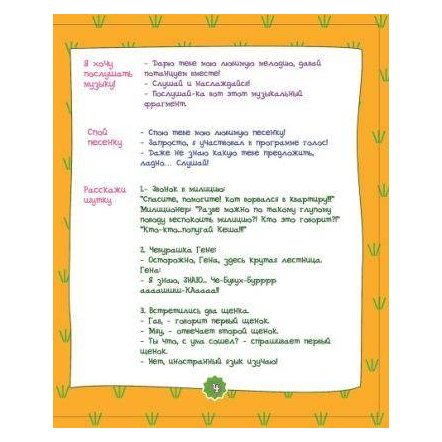 Я хочу
послушать
музыку!
- Дарю тебе мою любимую мелодию, давай
потанцуем вместе!
- Слушай и наслаждайся!
- Послушай-ка вот этот музыкальный
фрагмент.
Спой
песенку
- Спою тебе мою любимую песенку!
- Запросто, я участвовал в программе голос!
- Даже не знаю какую тебе предложить,
ладно... Слушай!
Расскажи
шутку
1.- Звонок в милицию:
"Спасите, помогите! кот ворвался в квартиру!!!"
Милиционер: "Разве можно по такому глупому
поводу беспокоить милицию?! Кто это говорит?!"
"Кто-кто..попугай Кеша!!!"
2. Чебурашка Гене:
- Осторожно, Гена, здесь крутая лестница.
Гена:
- Я знаю, ЗНАЮ.. Че-Бууух-Буррррр
3. Встретились два щенка.
- Гав, - говорит первый щенок.
- Мяу, - отвечает второй щенок.
- Ты что, с ума сошел? - спрашивает первый
щенок.
- Нет, иностранный язык изучаю!
4